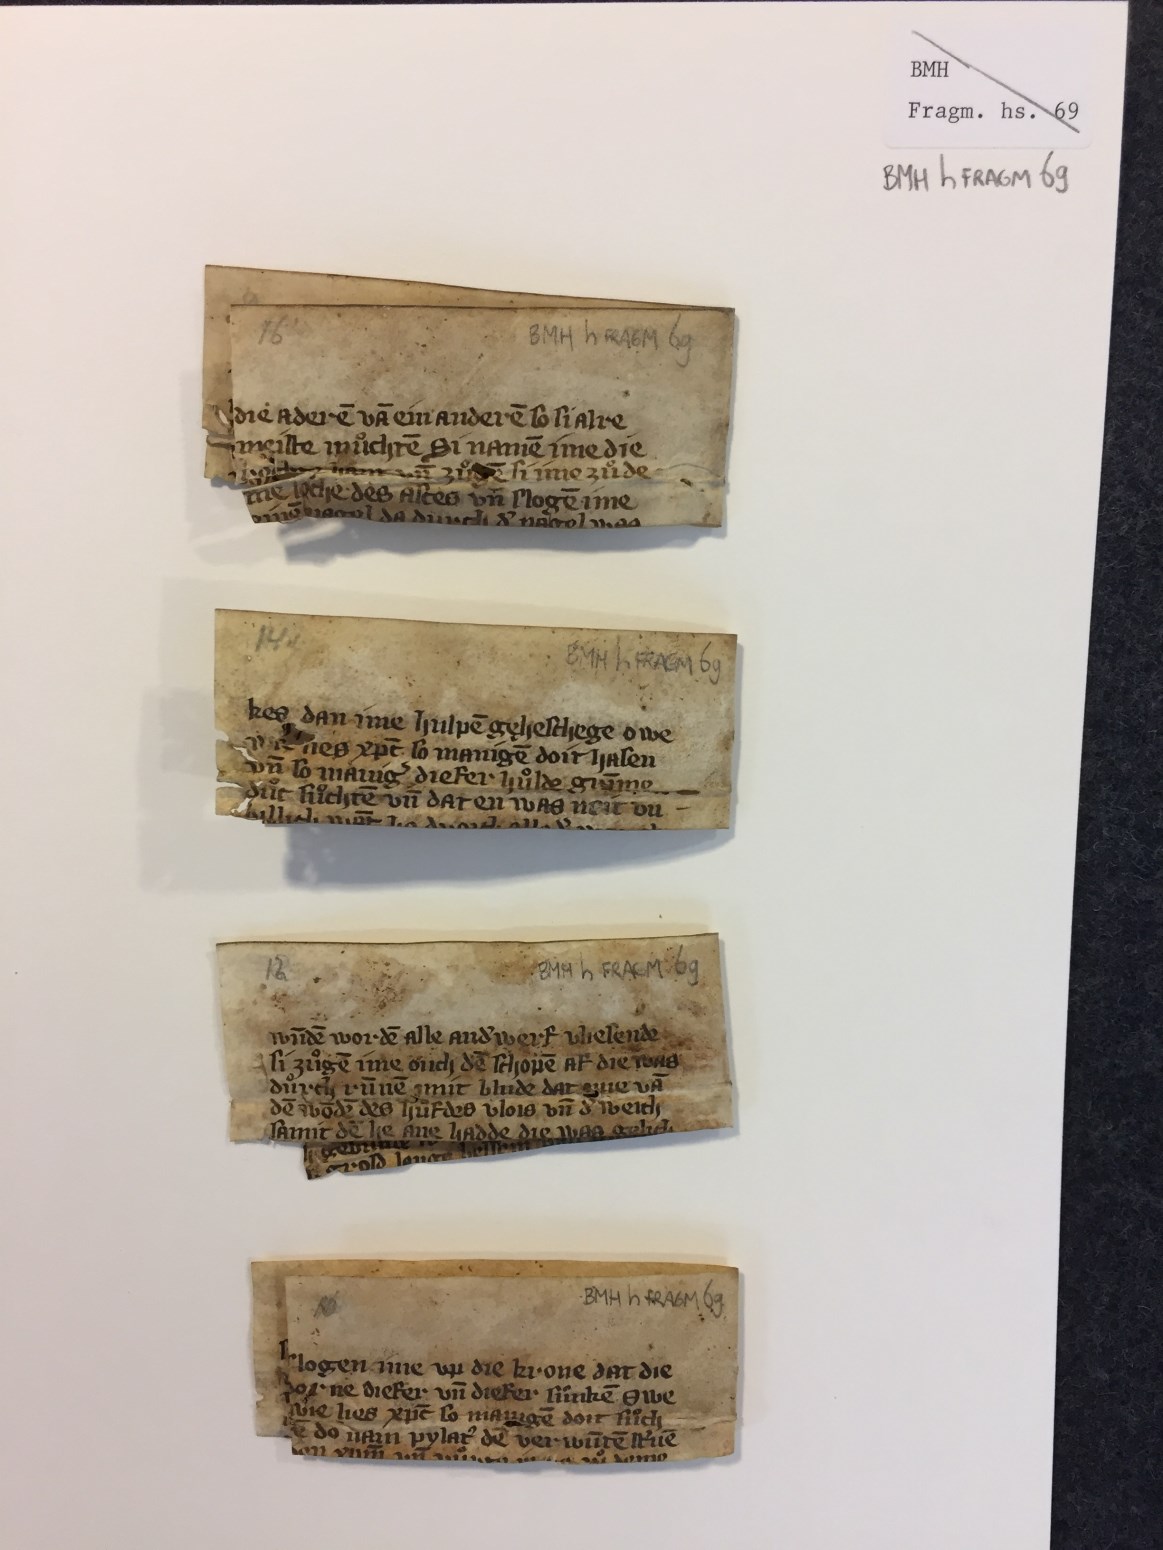 BMH
Fragm. hs. 69
BMH h FRAGM 69
16
BMH h FRAGM 69
die aderē vā ein anderē so si alre
meiste můchtē Si namē ime die
vn̄ zůgē si ime zů de
me loche des astes vn̄ slogē ime
nagel da durch d' nagel was
14
BMH h FRAGM 69
kes dan ime hulpē geheschege owe
lies xpc̄ so manigē doit hasen
vn̄ so manig' diefer hůlde
důt sůchtē vn̄ dat en was neit vn
12
BMH h FRAGM 69
wn̄dē wordē alle and'werf vliesende
si zůgē ime ouch dē schopē af die was
důrch rūnē mit blude dat vā
dē wōdē des hůfdes vlois vn̄ d' weich
samit dē he ane hadde die was gelich
grois lange
10
BMH h FRAGM 69
slogen ime vp die krone dat die
dorne diefer vn̄ diefer sůnkē Owe
wie lies xpc̄ so manigē doit sůch
ē do nam pylat' dē verwūtē